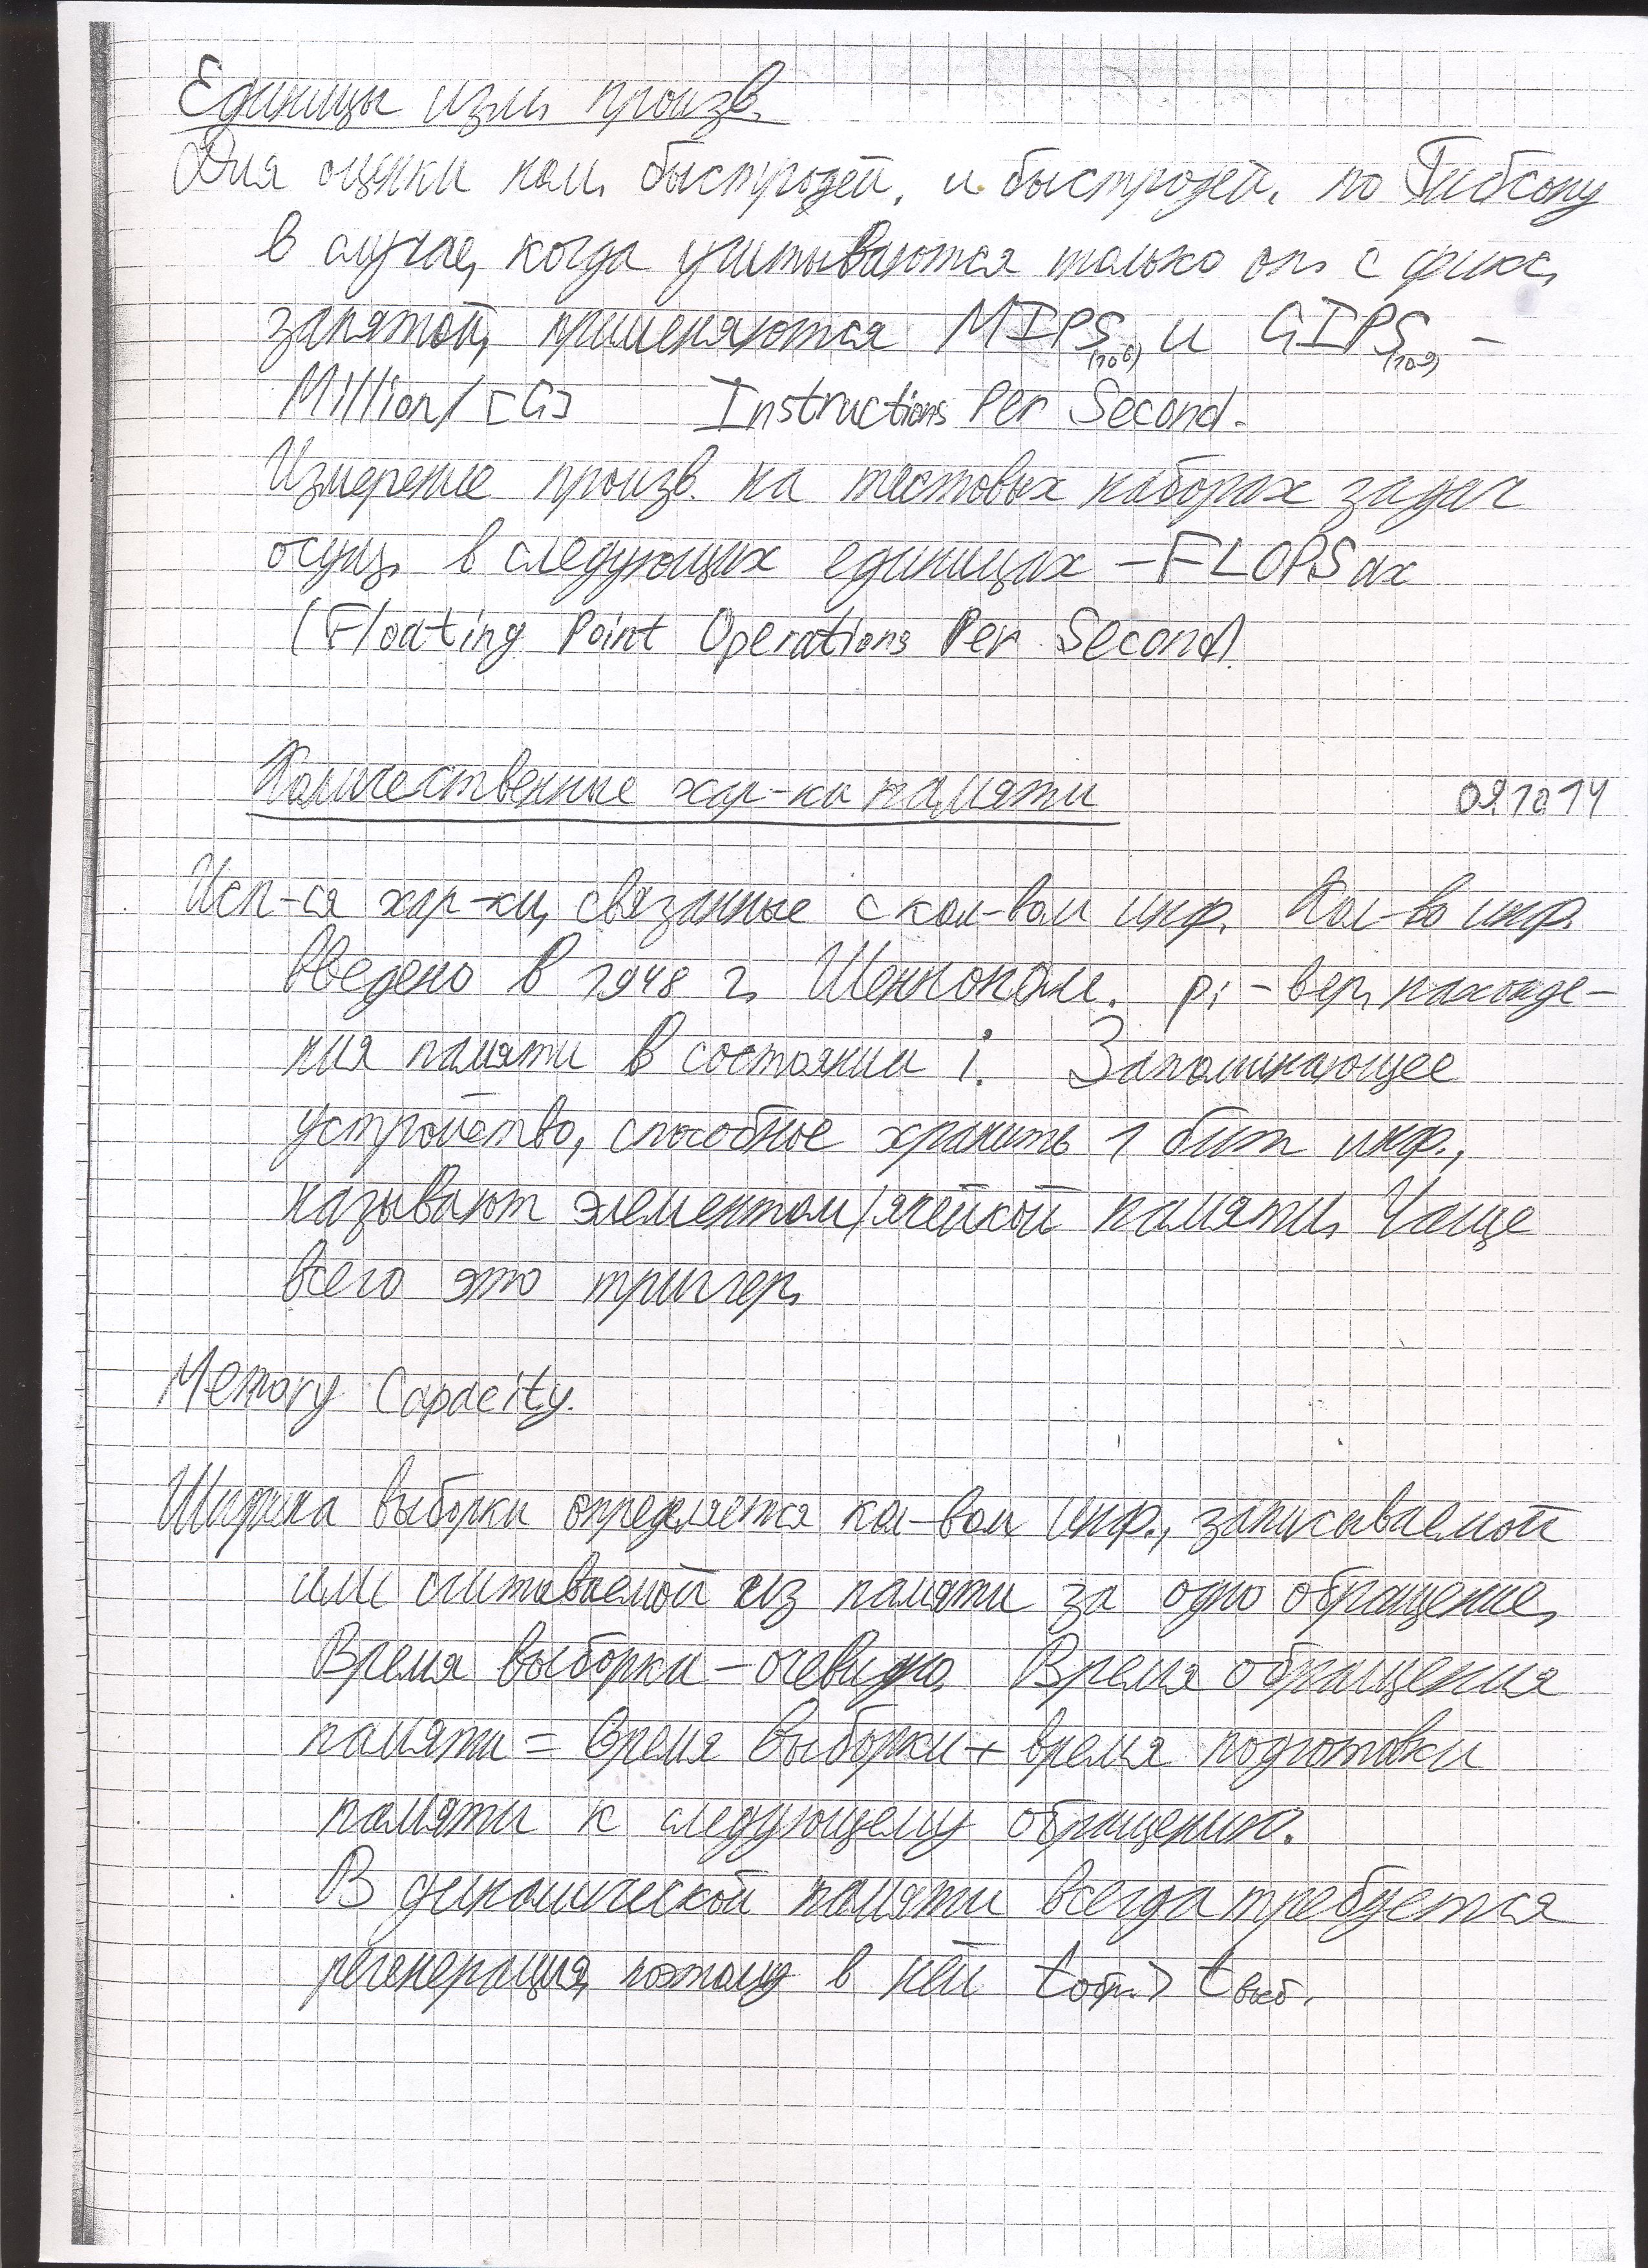 Единицы изм. произв.
Для оценки ном. быстродей. и быстродей. по Гибсону
в случае, когда учитываются только оп. с фикс.
запятой, применяются MIPS(10^6) и GIPS(10^9) –
Million/[G] Instructions Per Second.
Измерение произв. на тестовых наборах задач
осущ. в следующих единицах – FLOPSах
(Floating Point Operations Per Second).
Количественные хар-ки памяти 091014
Исп-ся хар-ки, связанные с кол-вом инф. Кол-во инф.
введено в 1948 г. Шенноном. pi – вер. нахожде-
ния памяти в состоянии i. Запоминающее
устройство, способное хранить 1 бит инф.,
называют элементом/ячейкой памяти. Чаще
всего это триггер.
Memory Capacity.
Ширина выборки определяется кол-вом инф., записываемой
или считываемой из памяти за одно обращение.
Время выборки – очевидно. Время обращения
памяти = время выборки + время подготовки
памяти к следующему обращению.
В динамической памяти всегда требуется
регенерация, поэтому в ней tобр. > tвыб.